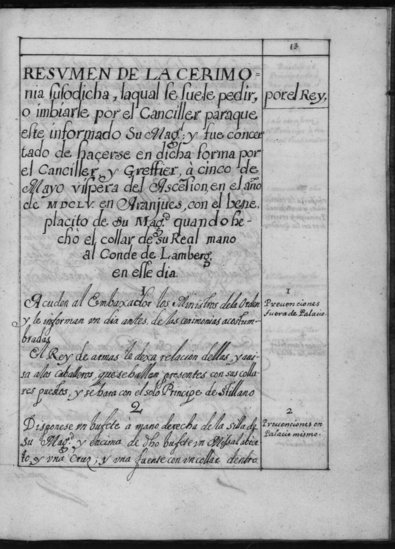 13
RESVMEN DE LA CERIMO=
nia susodicha, laqual se suele pedir,
por el Rey,
o imbiarle por el Canciller paraque
este informado Su Mag.; y fue concer
tado de hacerse en dicha forma por
el Canciller, y Greffier, a cinco de
Mayo vispera del Ascension, en el año
de MDCLV. en Aranjues, con el bene
placito de Su Mag. quando he=
chò el collar de su Real mano
al Conde de Lamberg,
en esse dia.
1
Prevenciones
fuera de Palacio.
Acuden al Embaxador los Ministros de la Orden
y le informan un dia antes de las cerimonias acostum=
bradas
El Rey de armas le dexa relacion dellas, y avi=
sa a los caballeros, que se hallan presentes con sus colla
res puestos, y se hara con el solo Principe de Stillano
2
2
Prevenciones en
Palacio mismo.
Disponese un bufete a mano derecha de la silla de
Su Mag. y encima de dho bufete un Missal abier
to, y una Cruz; y una fuente con un collar dentro